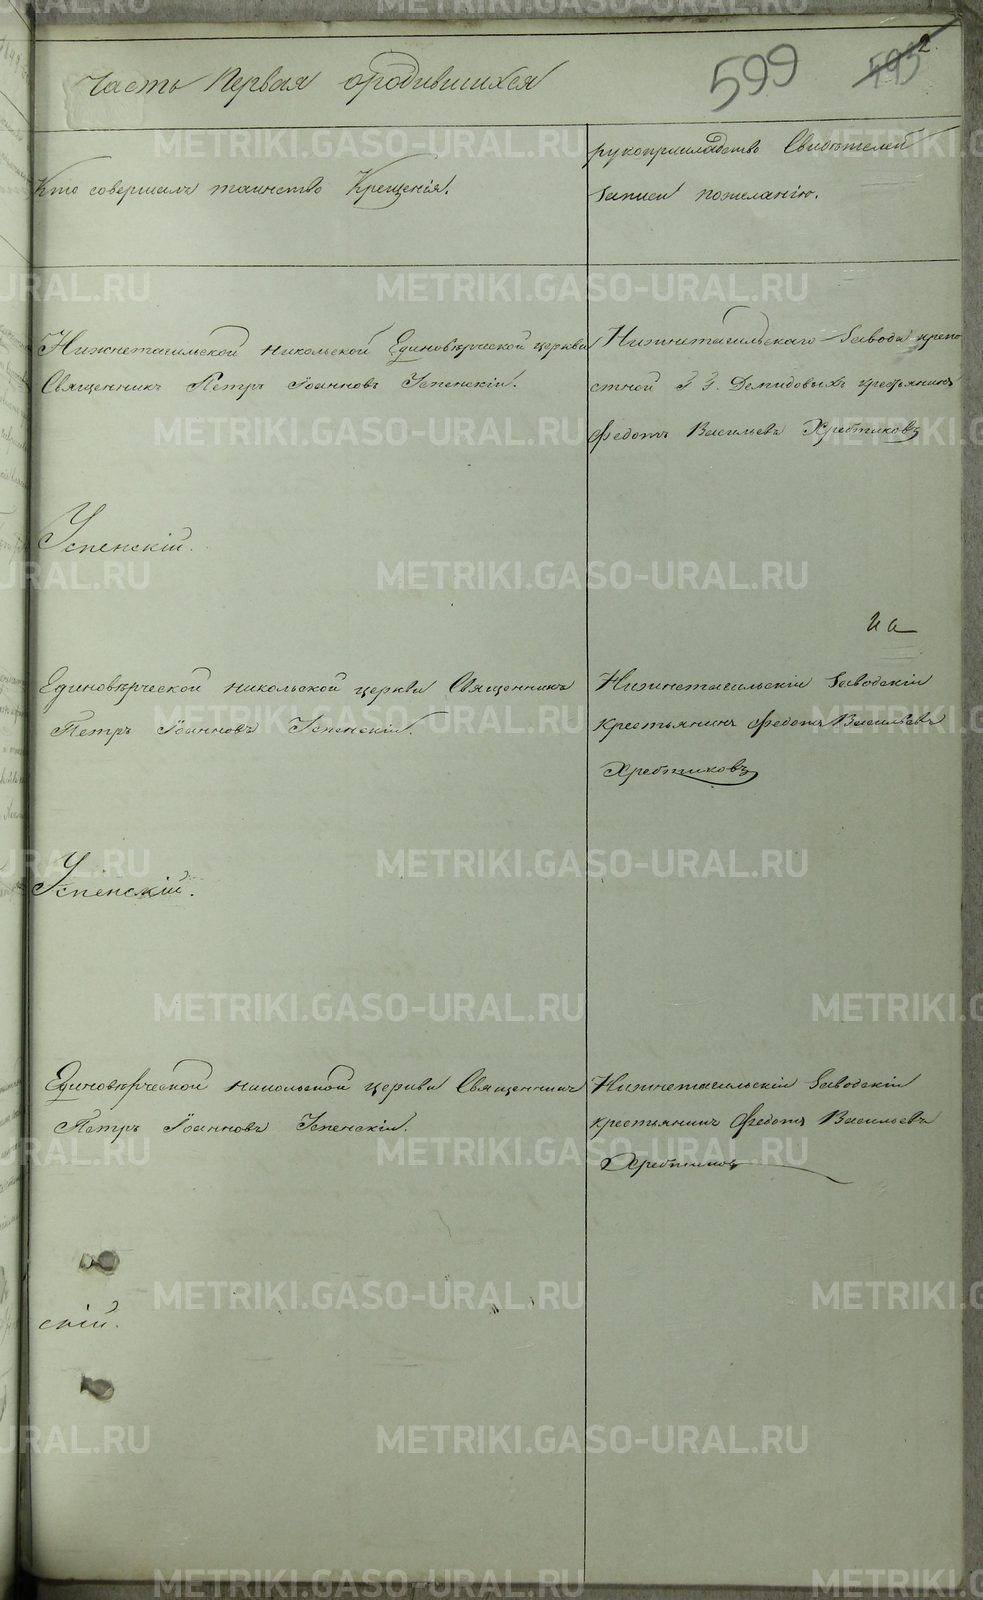 2.
Часть Первая ородившихся 599 595
Кто совершалъ таинство Крещенія.
рукоприкладство Свидѣтелей
записи пожеланію.
Нижнетагильской Никольской Единовѣрческой церкви
Священникъ Петръ Іоанновъ Успенскій.
Нижнетагильскаго Завода крепо
стной Г. Г. Демидовыхъ крестьянинъ
Федотъ Васильевъ Хребтиковъ
Успенскій.
на
Единовѣрческой Никольской церкви Священникъ
Петръ Іоанновъ Успенскій.
Нижнетагильскій Заводскій
крестьянинъ Федотъ Васильевъ
Хребтиковъ
Успенскій.
Единовѣрческой Никольской церкви Священникъ
Петръ Іоанновъ Успенскій.
Нижнетагильскій Заводскій
крестьянинъ Федотъ Васильевъ
Хребтиковъ
скій.
METRIKI.GASO-URAL.RU